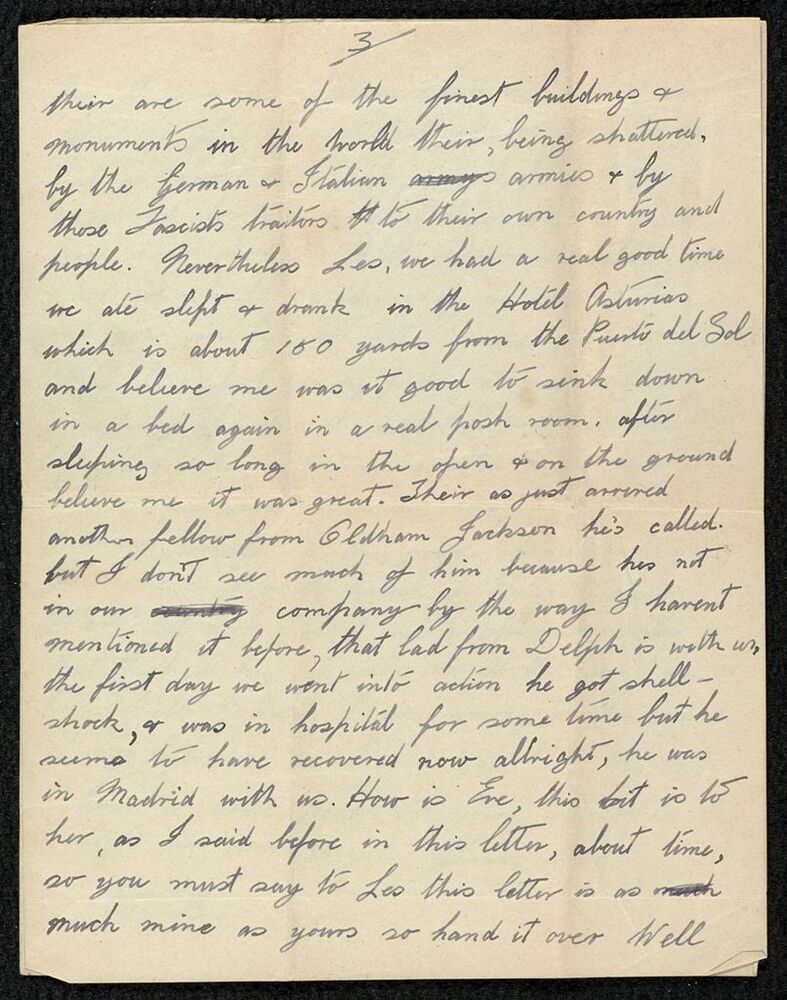 3/
their are some of the finest buildings &
monuments in the World their, being shattered,
by the German & Italian armys armies & by
those Fascists traitors to their own country and
people. Nevertheless Les, we had a real good time
we ate slept & drank in the Hotel Asturias
which is about 100 yards from the Puerto del Sol
and believe me was it good to sink down
in a bed again in a real posh room. after
sleeping so long in the open & on the ground
believe me it was great. Their as just arrived
another fellow from Oldham Jackson he's called.
but I don't see much of him because hes not
in our country company by the way I havent
mentioned it before, that lad from Delph is with us,
the first day we went into action he got shell-
shock, & was in hospital for some time but he
seems to have recovered now allright, he was
in Madrid with us. How is Eve, this bit is to
her, as I said before in this letter, about time,
so you must say to Les this letter is as much
much mine as yours so hand it over Well